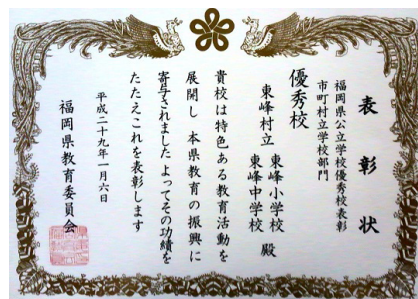 表彰状
福岡県公立学校優秀校表彰
市町村立学校部門
優秀校
東峰村立 東峰小学校
東峰中学校 殿
貴校は特色ある教育活動を
展開し 本県教育の振興に
寄与されました よってその功績を
たたえこれを表彰します
平成二十九年一月六日
福岡県教育委員会